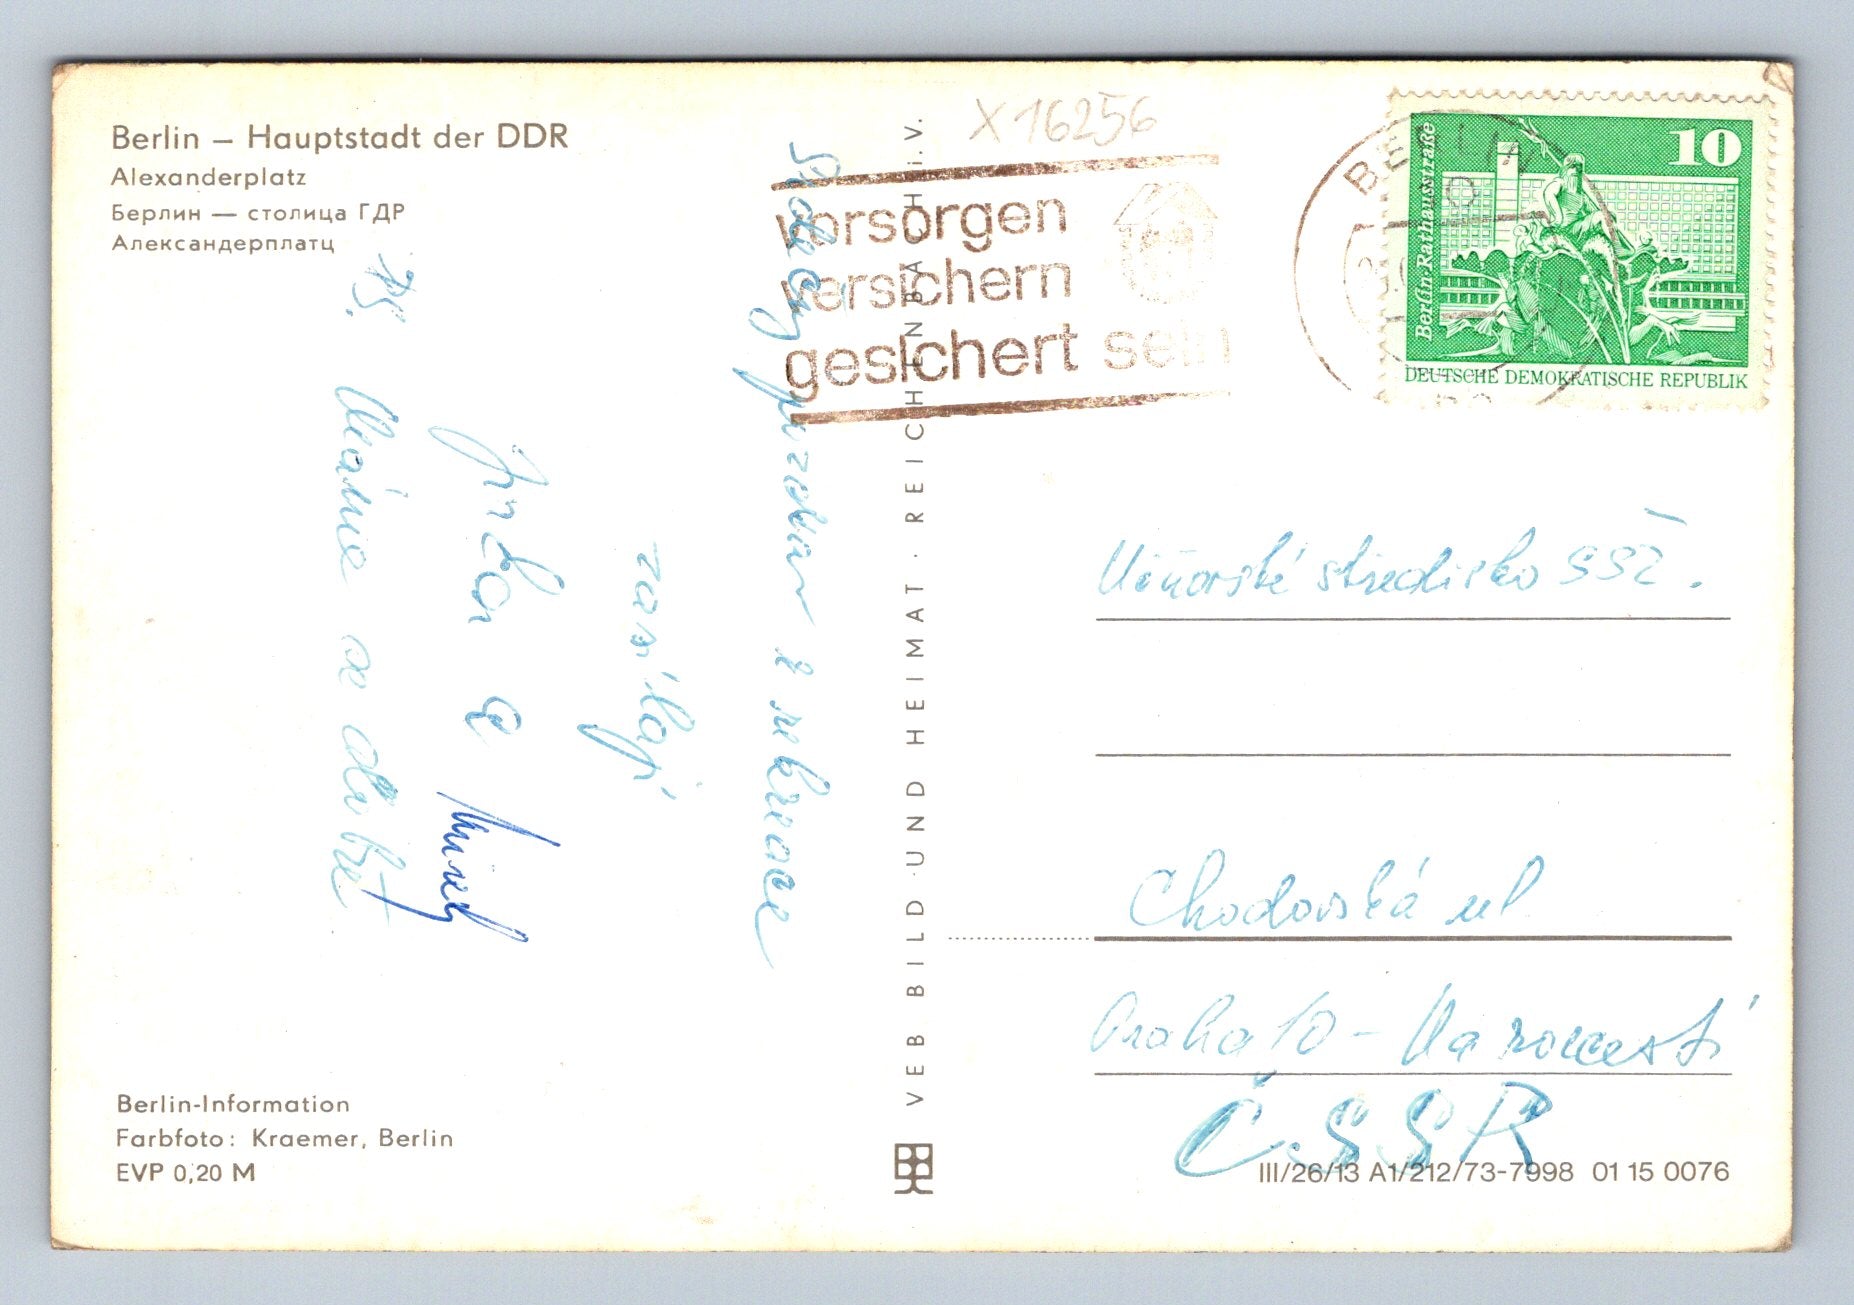 Berlin – Hauptstadt der DDR
Alexanderplatz
Берлин — столица ГДР
Александерплатц
Srdečný pozdrav z
zasílají
Jirka a Mirek
PS. Mánie se
Berlin-Information
Farbfoto: Kraemer, Berlin
EVP 0,20 M
VEB BILD UND HEIMAT · REICHENBACH i. V.
X 16256
vorsorgen
versichern
gesichert sein
BERLIN
10
Berlin-Rathausstraße
DEUTSCHE DEMOKRATISCHE REPUBLIK
Učňovské středisko SSŽ.
Chodovská ul
Praha 10 -
ČSSR
III/26/13 A1/212/73-7998 01 15 0076